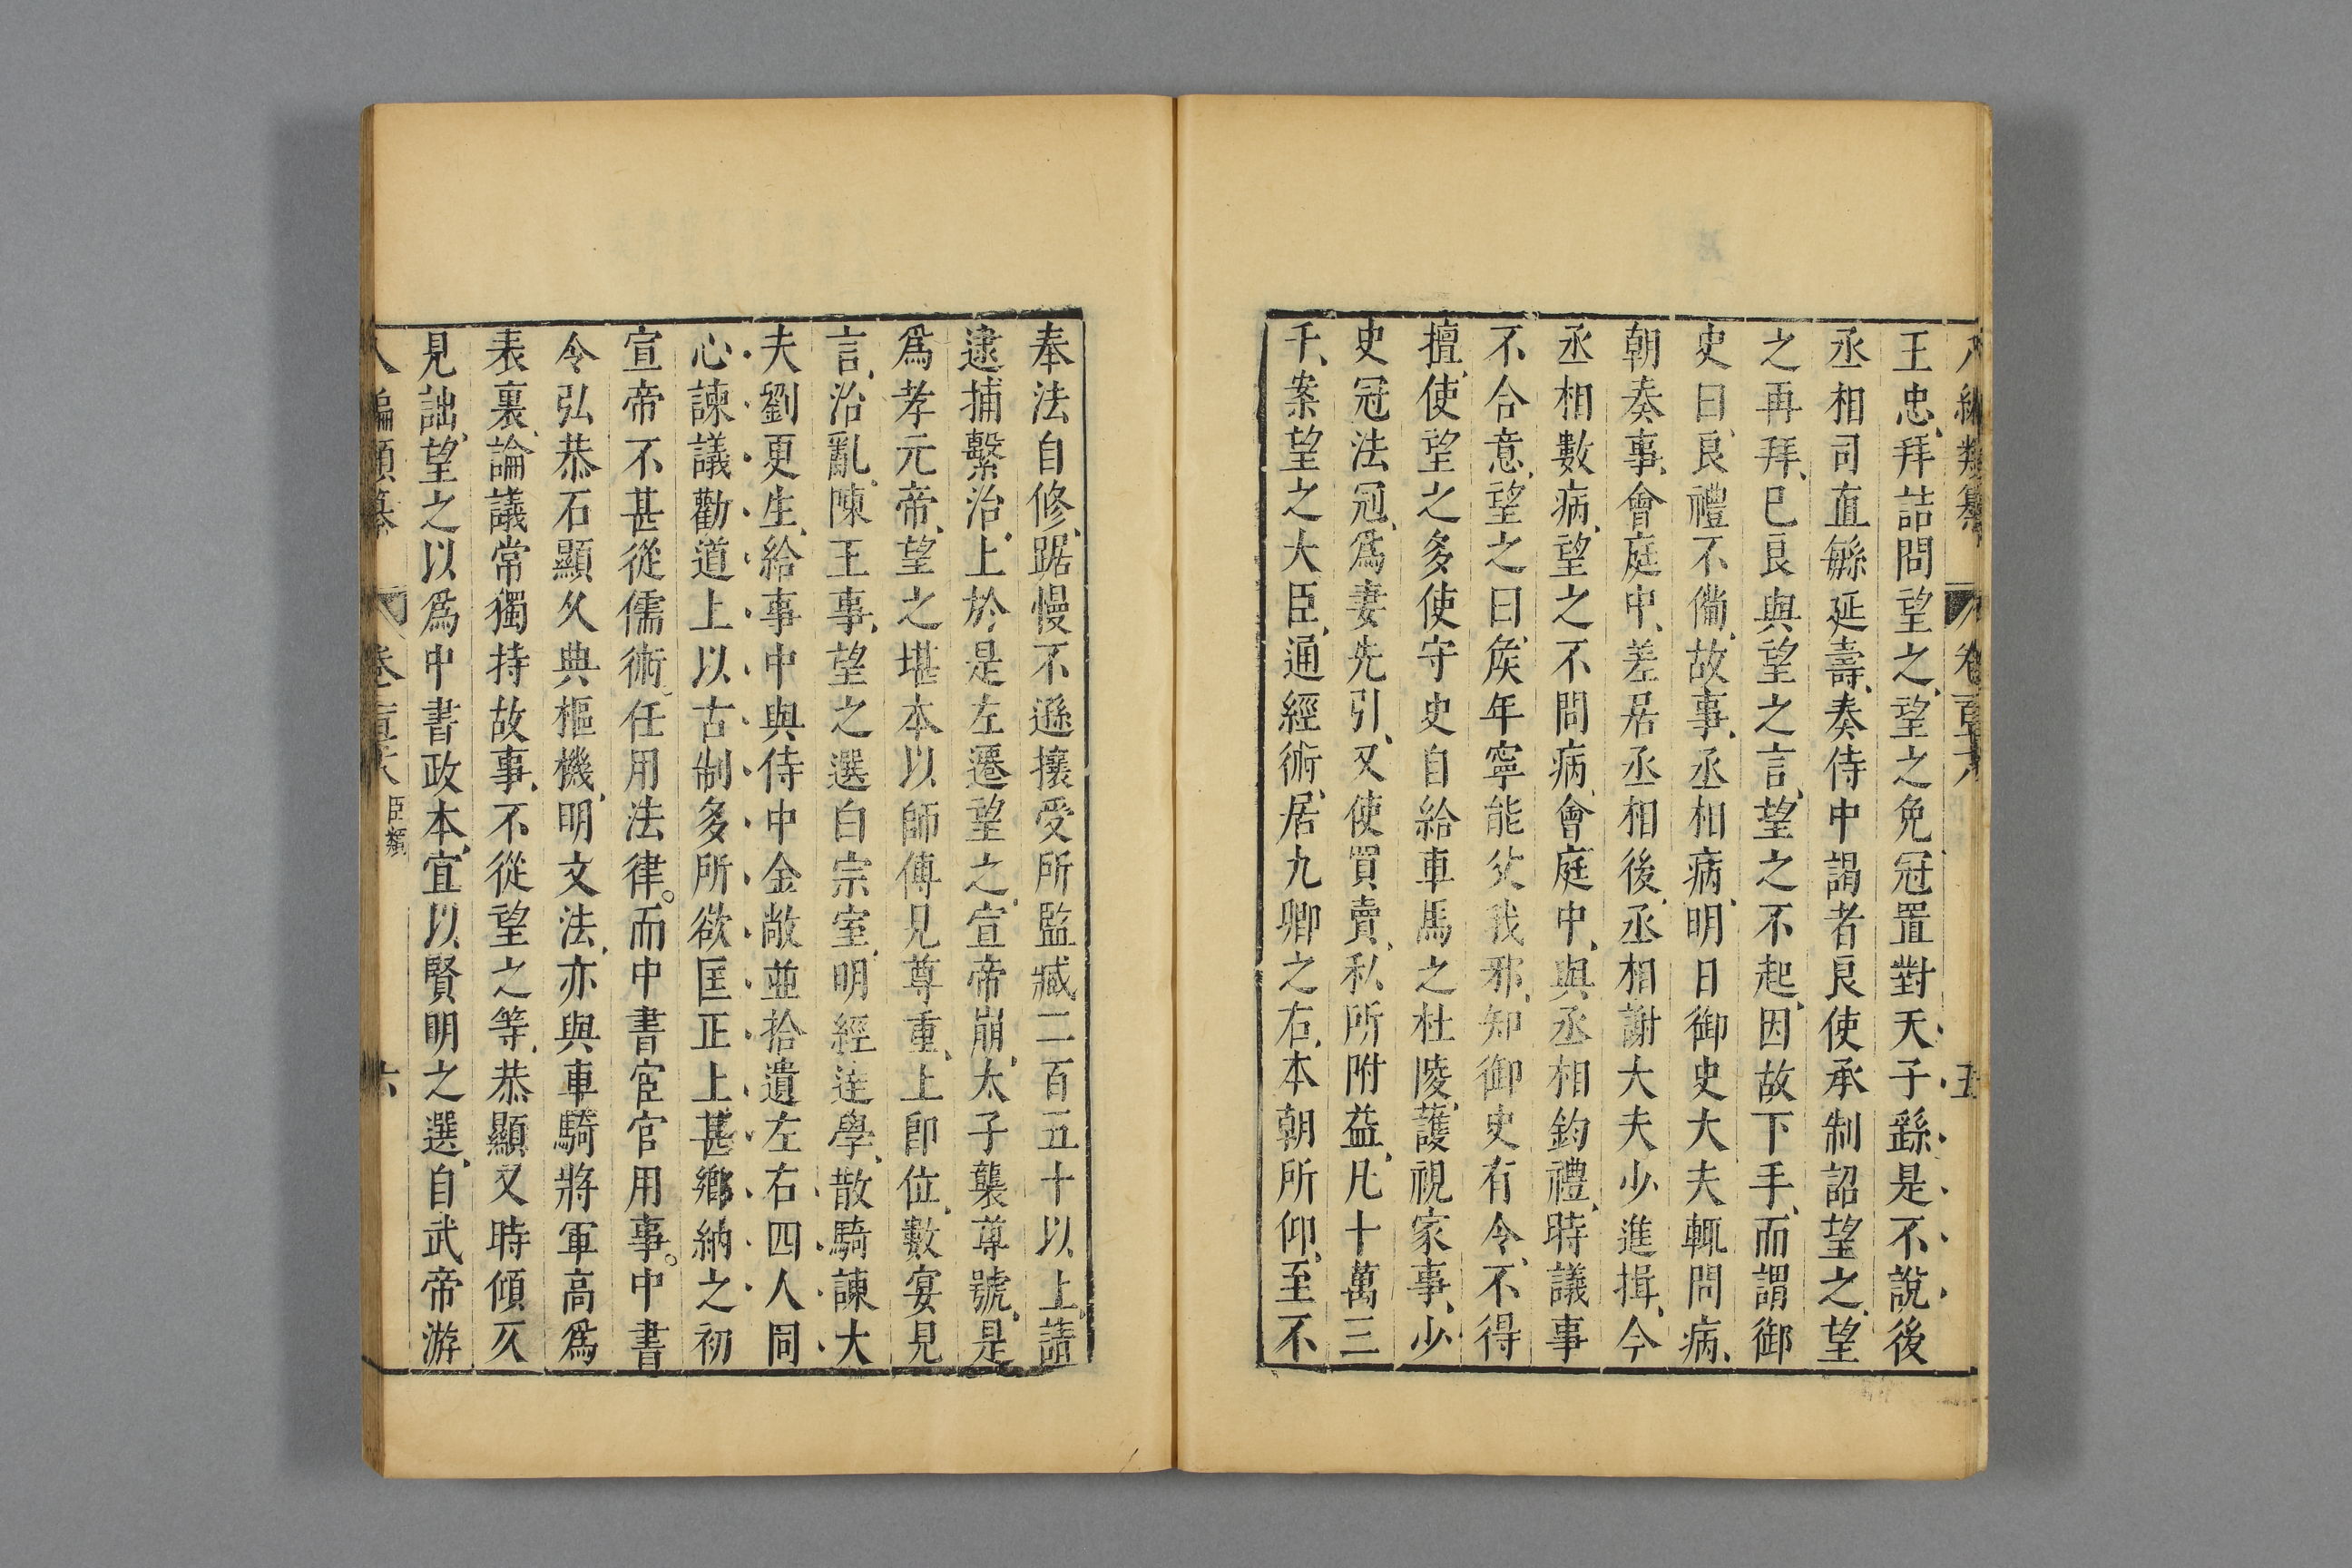 八編類纂 卷一百六 五
王忠、拜詰問望之、望之免冠置對天子繇是不說後
丞相司直緐延壽、奏侍中謁者良使承制詔望之、望
之再拜、已良與望之言、望之不起、因故下手、而謂御
史曰、良禮不備、故事、丞相病、明日御史大夫輒問病、
朝奏事、會庭中、差居丞相後、丞相謝大夫少進揖、今
丞相數病、望之不問病、會庭中、與丞相鈞禮、時議事
不合意、望之曰、矦年寧能父我邪、知御史有令、不得
擅、使望之多使守史自給車馬之杜陵、護視家事、少
史冠法冠、爲妻先引、又使買賣、私所附益、凡十萬三
千、案望之大臣、通經術、居九卿之右、本朝所仰、至不
奉法自修、踞慢不遜攘受所監臧二百五十以上、請
逮捕繫治、上於是左遷望之、宣帝崩、太子襲尊號、是
爲孝元帝、望之堪本以師傅見尊重、上卽位、數宴見
言、治亂、陳王事、望之選白宗室、明經達學、散騎諫大
夫劉更生、給事中與侍中金敞並拾遺左右四人同
心諫議勸道上以古制多所欲匡正上甚鄉納之初
宣帝不甚從儒術、任用法律。而中書宦官用事。中書
令弘恭石顯久典樞機、明文法、亦與車騎將軍高爲
表裏、論議常獨持故事、不從望之等、恭顯又時傾仄
見詘、望之以爲中書政本、宜以賢明之選、自武帝游
八編類纂 卷一百六 臣類 六